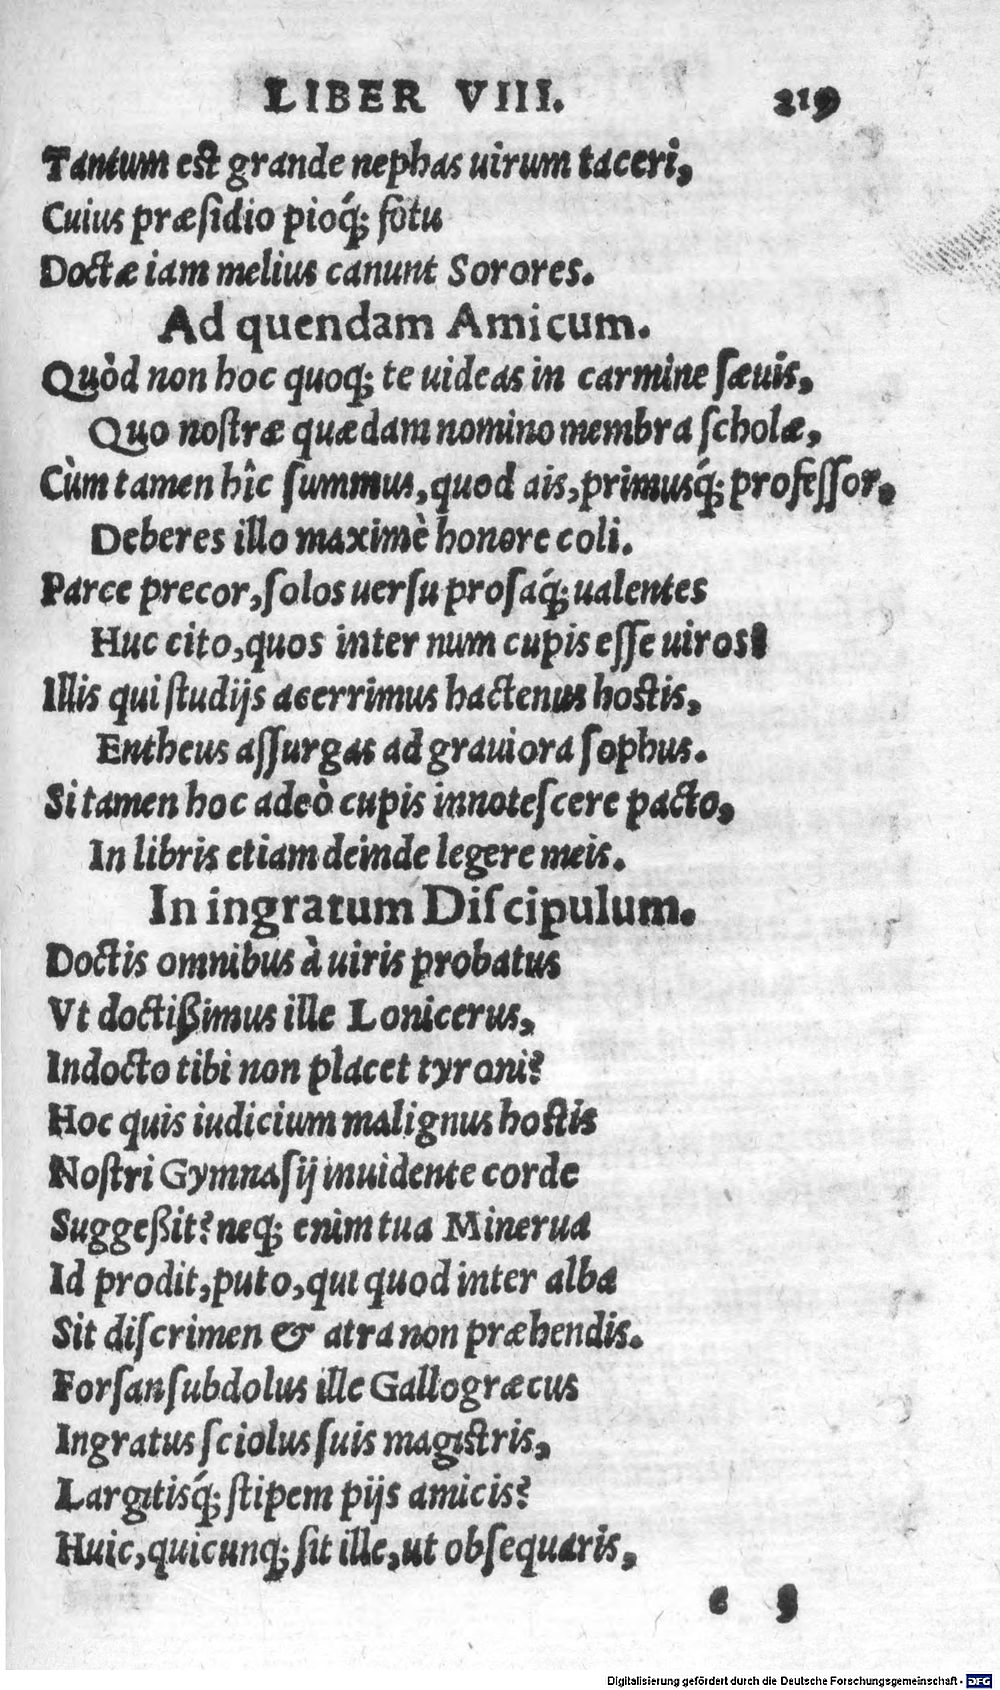 LIBER VIII. 219
Tantum est grande nephas uirum taceri,
Cuius præſidio pioq́; fotu
Doctæ iam melius canunt Sorores.
Ad quendam Amicum.
Quòd non hoc quoq; te uideas in carmine ſæuis,
Quo noſtræ quædam nomino membra ſcholæ,
Cùm tamen hîc ſummus, quod ais, primusq́; profeſſor,
Deberes illo maximè honore coli.
Parce precor, ſolos uerſu proſaq́; ualentes
Huc cito, quos inter num cupis eſſe uiros?
Illis qui ſtudijs acerrimus hactenus hostis,
Entheus aſſurgas ad grauiora ſophus.
Si tamen hoc adeò cupis innoteſcere pacto,
In libris etiam deinde legere meis.
In ingratum Diſcipulum.
Doctis omnibus à uiris probatus
Vt doctißimus ille Lonicerus,
Indocto tibi non placet tyroni?
Hoc quis iudicium malignus hostis
Noſtri Gymnaſij inuidente corde
Suggeßit? neq; enim tua Minerua
Id prodit, puto, qui quod inter alba
Sit diſcrimen & atra non præhendis.
Forſan ſubdolus ille Gallogræcus
Ingratus ſciolus ſuis magistris,
Largitisq́; ſtipem pijs amicis?
Huic, quicunq; ſit ille, ut obſequaris,
e 5
Digitalisierung gefördert durch die Deutsche Forschungsgemeinschaft - DFG